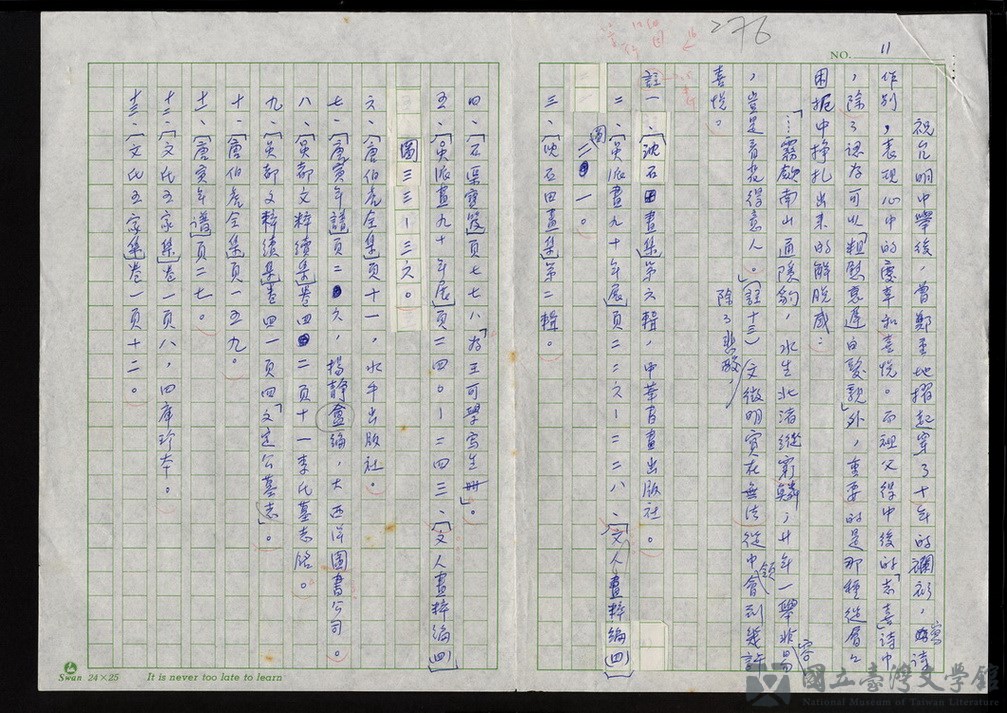 276
NO. 11
祝允明中舉後，曾鄭重地摺起穿了十年的襴衫，寫詩
作別，表現心中的慶幸和喜悅。而祖父得中後的「志喜」詩中
，除了認為可以「粗慰衰遲白髮親」外，重要的是那種從層層
困扼中掙扎出來的解脫感：
「…霧歛南山通隱豹，水生北渚縱窮鱗；廿年一舉非容易
，豈是看花得意人。」（註十三）文徵明實在無法從中領會到幾許
除了悲酸，
喜悅。
註一、〔沈石田畫集〕第六輯，中華書畫出版社。
二、〔吳派畫九十年展〕頁二二六－二二八、〔文人畫粹編四〕
圖二、一。
三、〔沈石田畫集〕第二輯。
四、〔石渠寶笈〕頁七七八「為王可學寫生冊」。
五、〔吳派畫九十年展〕頁二四〇－二四三、〔文人畫粹編四〕
圖三三－三六。
六、〔唐伯虎全集〕頁十一，水牛出版社。
七、〔唐寅年譜〕頁二六，楊靜盦編，大西洋圖書公司。
八、〔吳都文粹續集〕卷四二頁十一李氏墓志銘。
九、〔吳都文粹續集〕卷四一頁四「文定公墓志」。
十、〔唐伯虎全集〕頁一五九。
十一、〔唐寅年譜〕頁二七。
十二、〔文氏五家集〕卷一頁八，四庫珍本。
十三、〔文氏五家集〕卷一頁十二。
Swan 24×25 It is never too late to learn
國立臺灣文學館
National Museum of Taiwan Literature